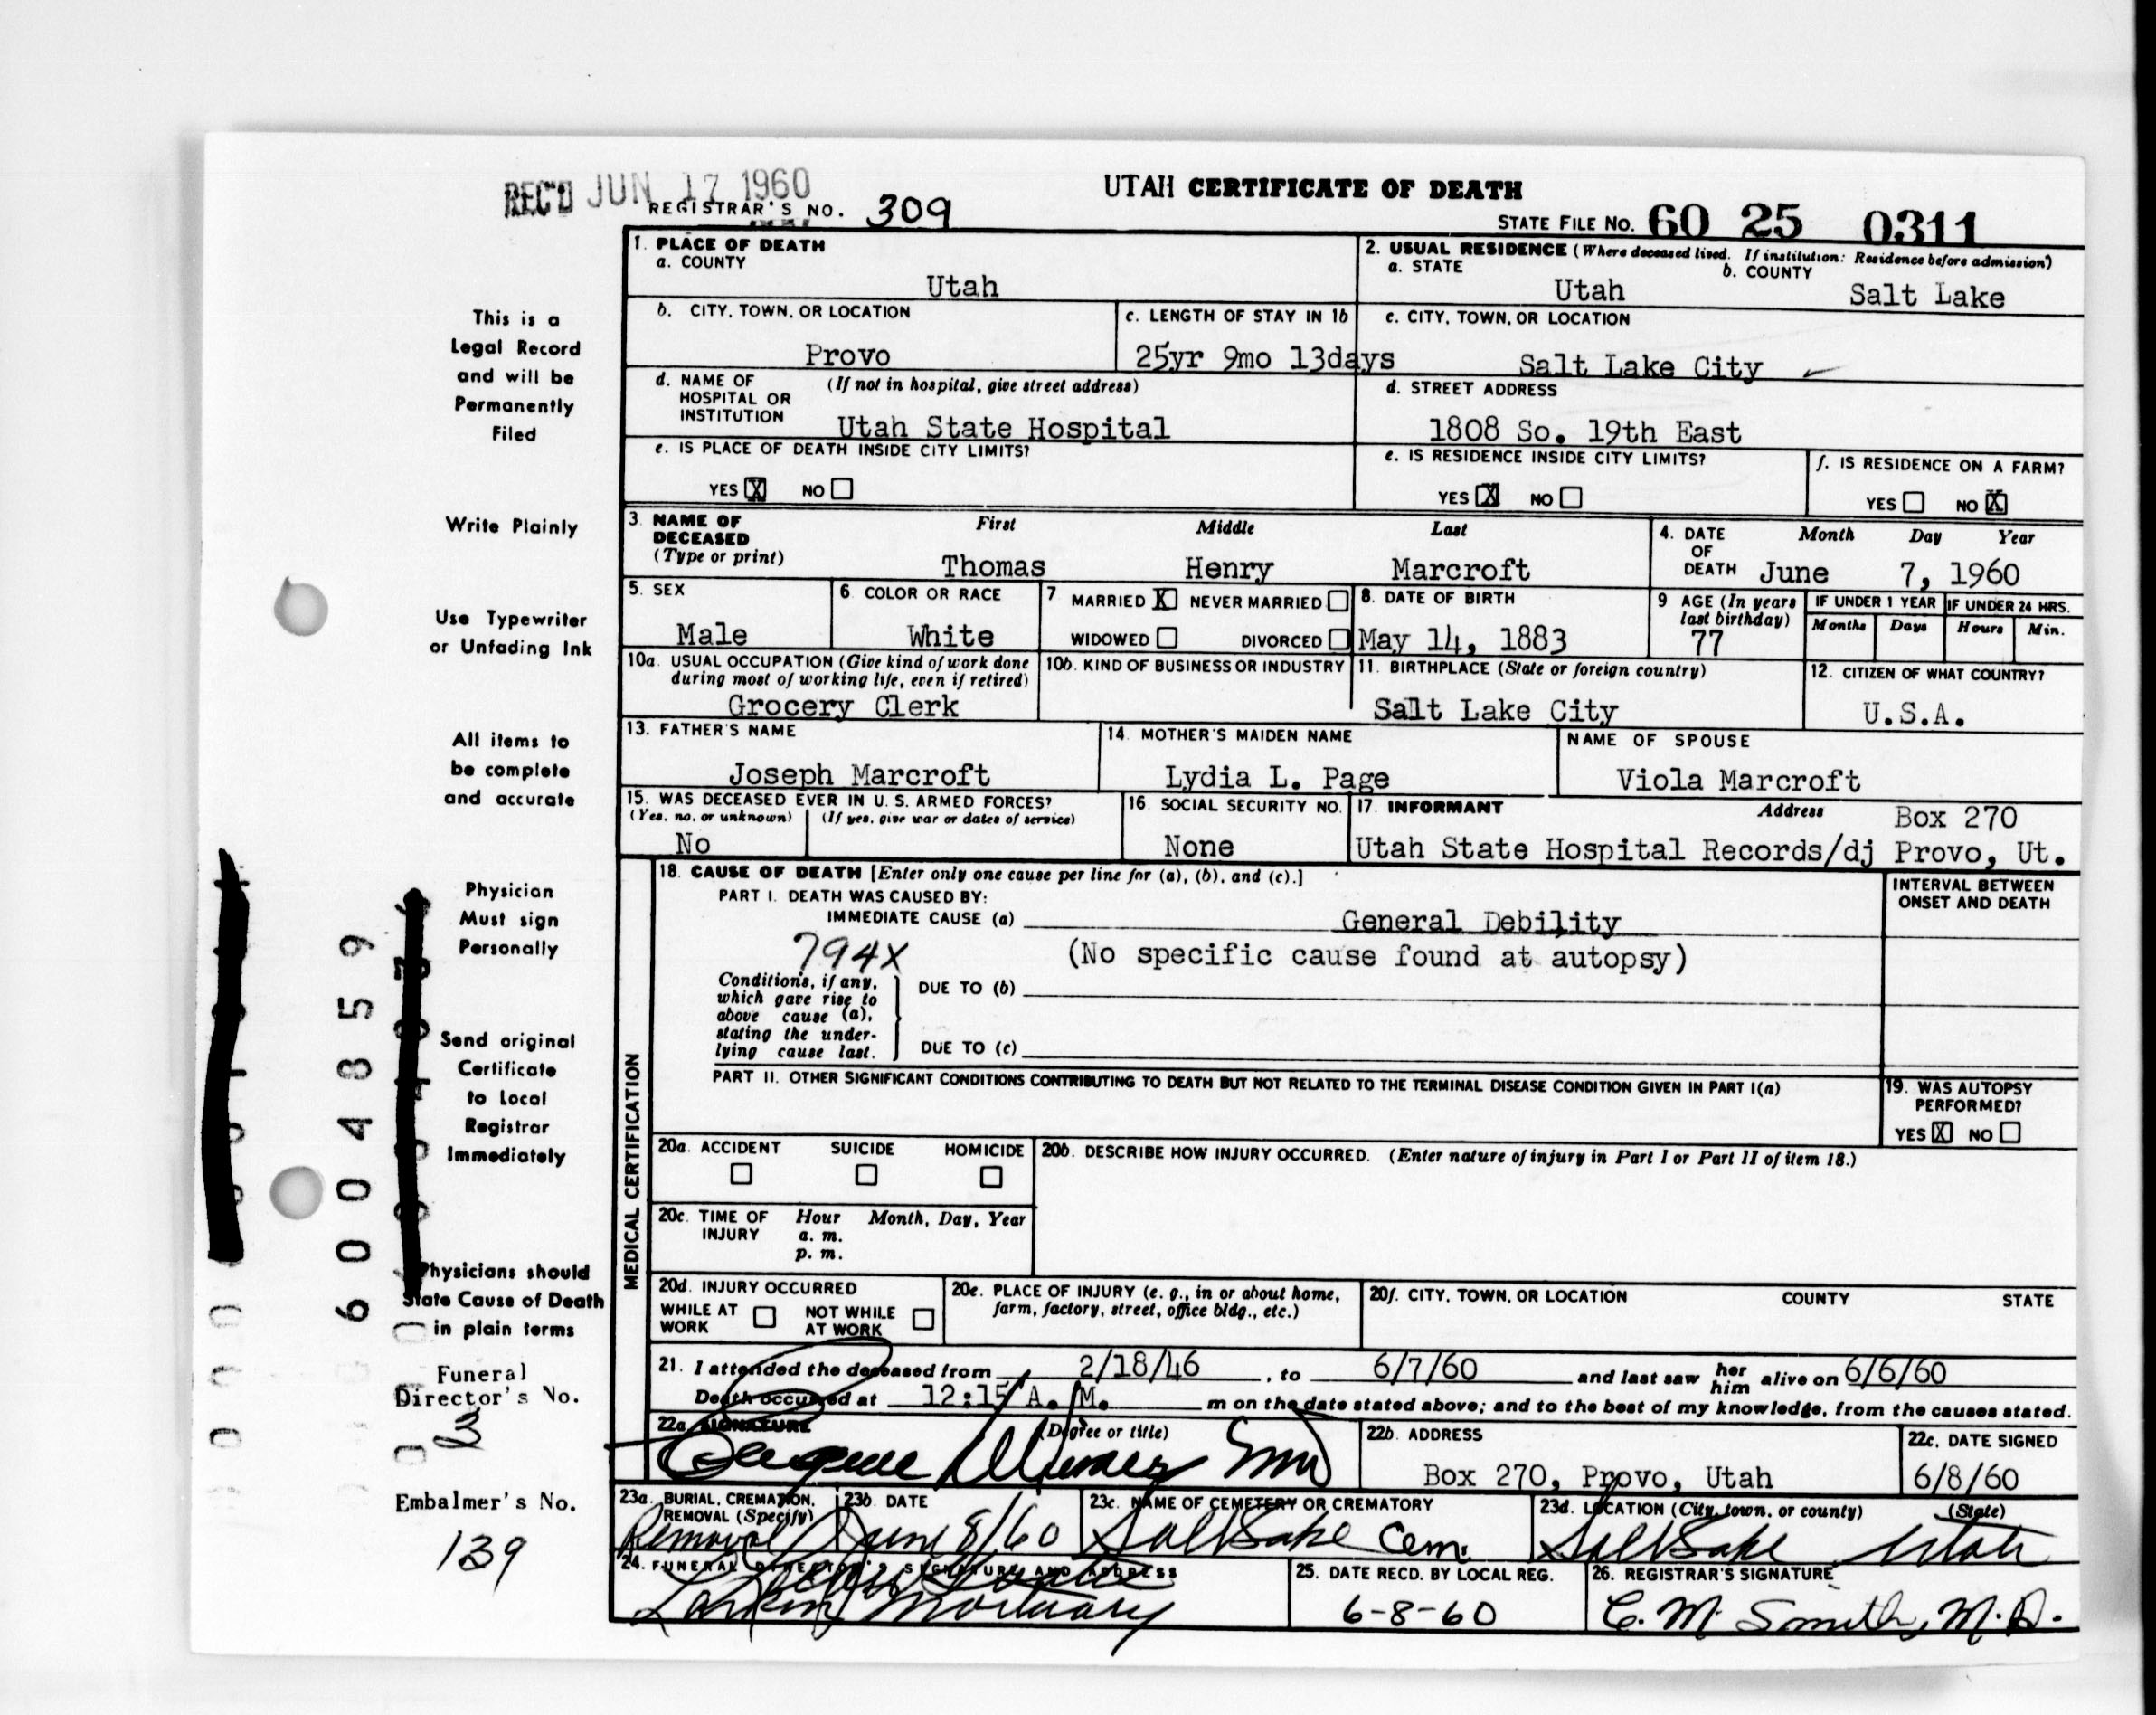 REC'D JUN 17 1960
REGISTRAR'S NO. 309
UTAH CERTIFICATE OF DEATH
STATE FILE NO. 60 25 0311
1. PLACE OF DEATH
a. COUNTY
Utah
2. USUAL RESIDENCE (Where deceased lived. If institution: Residence before admission)
a. STATE
Utah
b. COUNTY
Salt Lake
b. CITY, TOWN, OR LOCATION
Provo
c. LENGTH OF STAY IN 1b
25yr 9mo 13days
c. CITY, TOWN, OR LOCATION
Salt Lake City
d. NAME OF HOSPITAL OR INSTITUTION
(If not in hospital, give street address)
Utah State Hospital
d. STREET ADDRESS
1808 So. 19th East
e. IS PLACE OF DEATH INSIDE CITY LIMITS?
YES X NO
e. IS RESIDENCE INSIDE CITY LIMITS?
YES X NO
f. IS RESIDENCE ON A FARM?
YES NO X
3. NAME OF DECEASED
(Type or print)
First Middle Last
Thomas Henry Marcroft
4. DATE OF DEATH
Month Day Year
June 7, 1960
5. SEX
Male
6 COLOR OR RACE
White
7 MARRIED X NEVER MARRIED
WIDOWED DIVORCED
8. DATE OF BIRTH
May 14, 1883
9 AGE (In years last birthday)
77
IF UNDER 1 YEAR
Months Days
IF UNDER 24 HRS.
Hours Min.
10a. USUAL OCCUPATION (Give kind of work done during most of working life, even if retired)
Grocery Clerk
10b. KIND OF BUSINESS OR INDUSTRY
11. BIRTHPLACE (State or foreign country)
Salt Lake City
12. CITIZEN OF WHAT COUNTRY?
U.S.A.
13. FATHER'S NAME
Joseph Marcroft
14. MOTHER'S MAIDEN NAME
Lydia L. Page
NAME OF SPOUSE
Viola Marcroft
15. WAS DECEASED EVER IN U. S. ARMED FORCES?
(Yes, no, or unknown) (If yes, give war or dates of service)
No
16. SOCIAL SECURITY NO.
None
17. INFORMANT Address
Box 270
Utah State Hospital Records/dj Provo, Ut.
MEDICAL CERTIFICATION
18. CAUSE OF DEATH [Enter only one cause per line for (a), (b), and (c).]
PART I. DEATH WAS CAUSED BY:
IMMEDIATE CAUSE (a) General Debility
794X (No specific cause found at autopsy)
Conditions, if any, which gave rise to above cause (a), stating the underlying cause last.
DUE TO (b)
DUE TO (c)
INTERVAL BETWEEN
ONSET AND DEATH
PART II. OTHER SIGNIFICANT CONDITIONS CONTRIBUTING TO DEATH BUT NOT RELATED TO THE TERMINAL DISEASE CONDITION GIVEN IN PART I(a)
19. WAS AUTOPSY PERFORMED?
YES X NO
20a. ACCIDENT SUICIDE HOMICIDE
20b. DESCRIBE HOW INJURY OCCURRED. (Enter nature of injury in Part I or Part II of item 18.)
20c. TIME OF INJURY
Hour Month, Day, Year
a. m.
p. m.
20d. INJURY OCCURRED
WHILE AT WORK
NOT WHILE AT WORK
20e. PLACE OF INJURY (e. g., in or about home, farm, factory, street, office bldg., etc.)
20f. CITY, TOWN, OR LOCATION COUNTY STATE
21. I attended the deceased from 2/18/46, to 6/7/60 and last saw her him alive on 6/6/60
Death occurred at 12:15 A. M. m on the date stated above; and to the best of my knowledge, from the causes stated.
22a. SIGNATURE (Degree or title)
Eugene MD
22b. ADDRESS
Box 270, Provo, Utah
22c. DATE SIGNED
6/8/60
23a. BURIAL, CREMATION, REMOVAL (Specify)
Removal
23b. DATE
June 8/60
23c. NAME OF CEMETERY OR CREMATORY
Salt Lake Cem.
23d. LOCATION (City, town, or county) (State)
Salt Lake Utah
24. FUNERAL DIRECTOR'S SIGNATURE AND ADDRESS
Larkin Mortuary
25. DATE RECD. BY LOCAL REG.
6-8-60
26. REGISTRAR'S SIGNATURE
C. M. Smith, M.D.
This is a
Legal Record
and will be
Permanently
Filed
Write Plainly
Use Typewriter
or Unfading Ink
All items to
be complete
and accurate
Physician
Must sign
Personally
Send original
Certificate
to Local
Registrar
Immediately
Physicians should
State Cause of Death
in plain terms
Funeral
Director's No.
3
Embalmer's No.
139
6004859